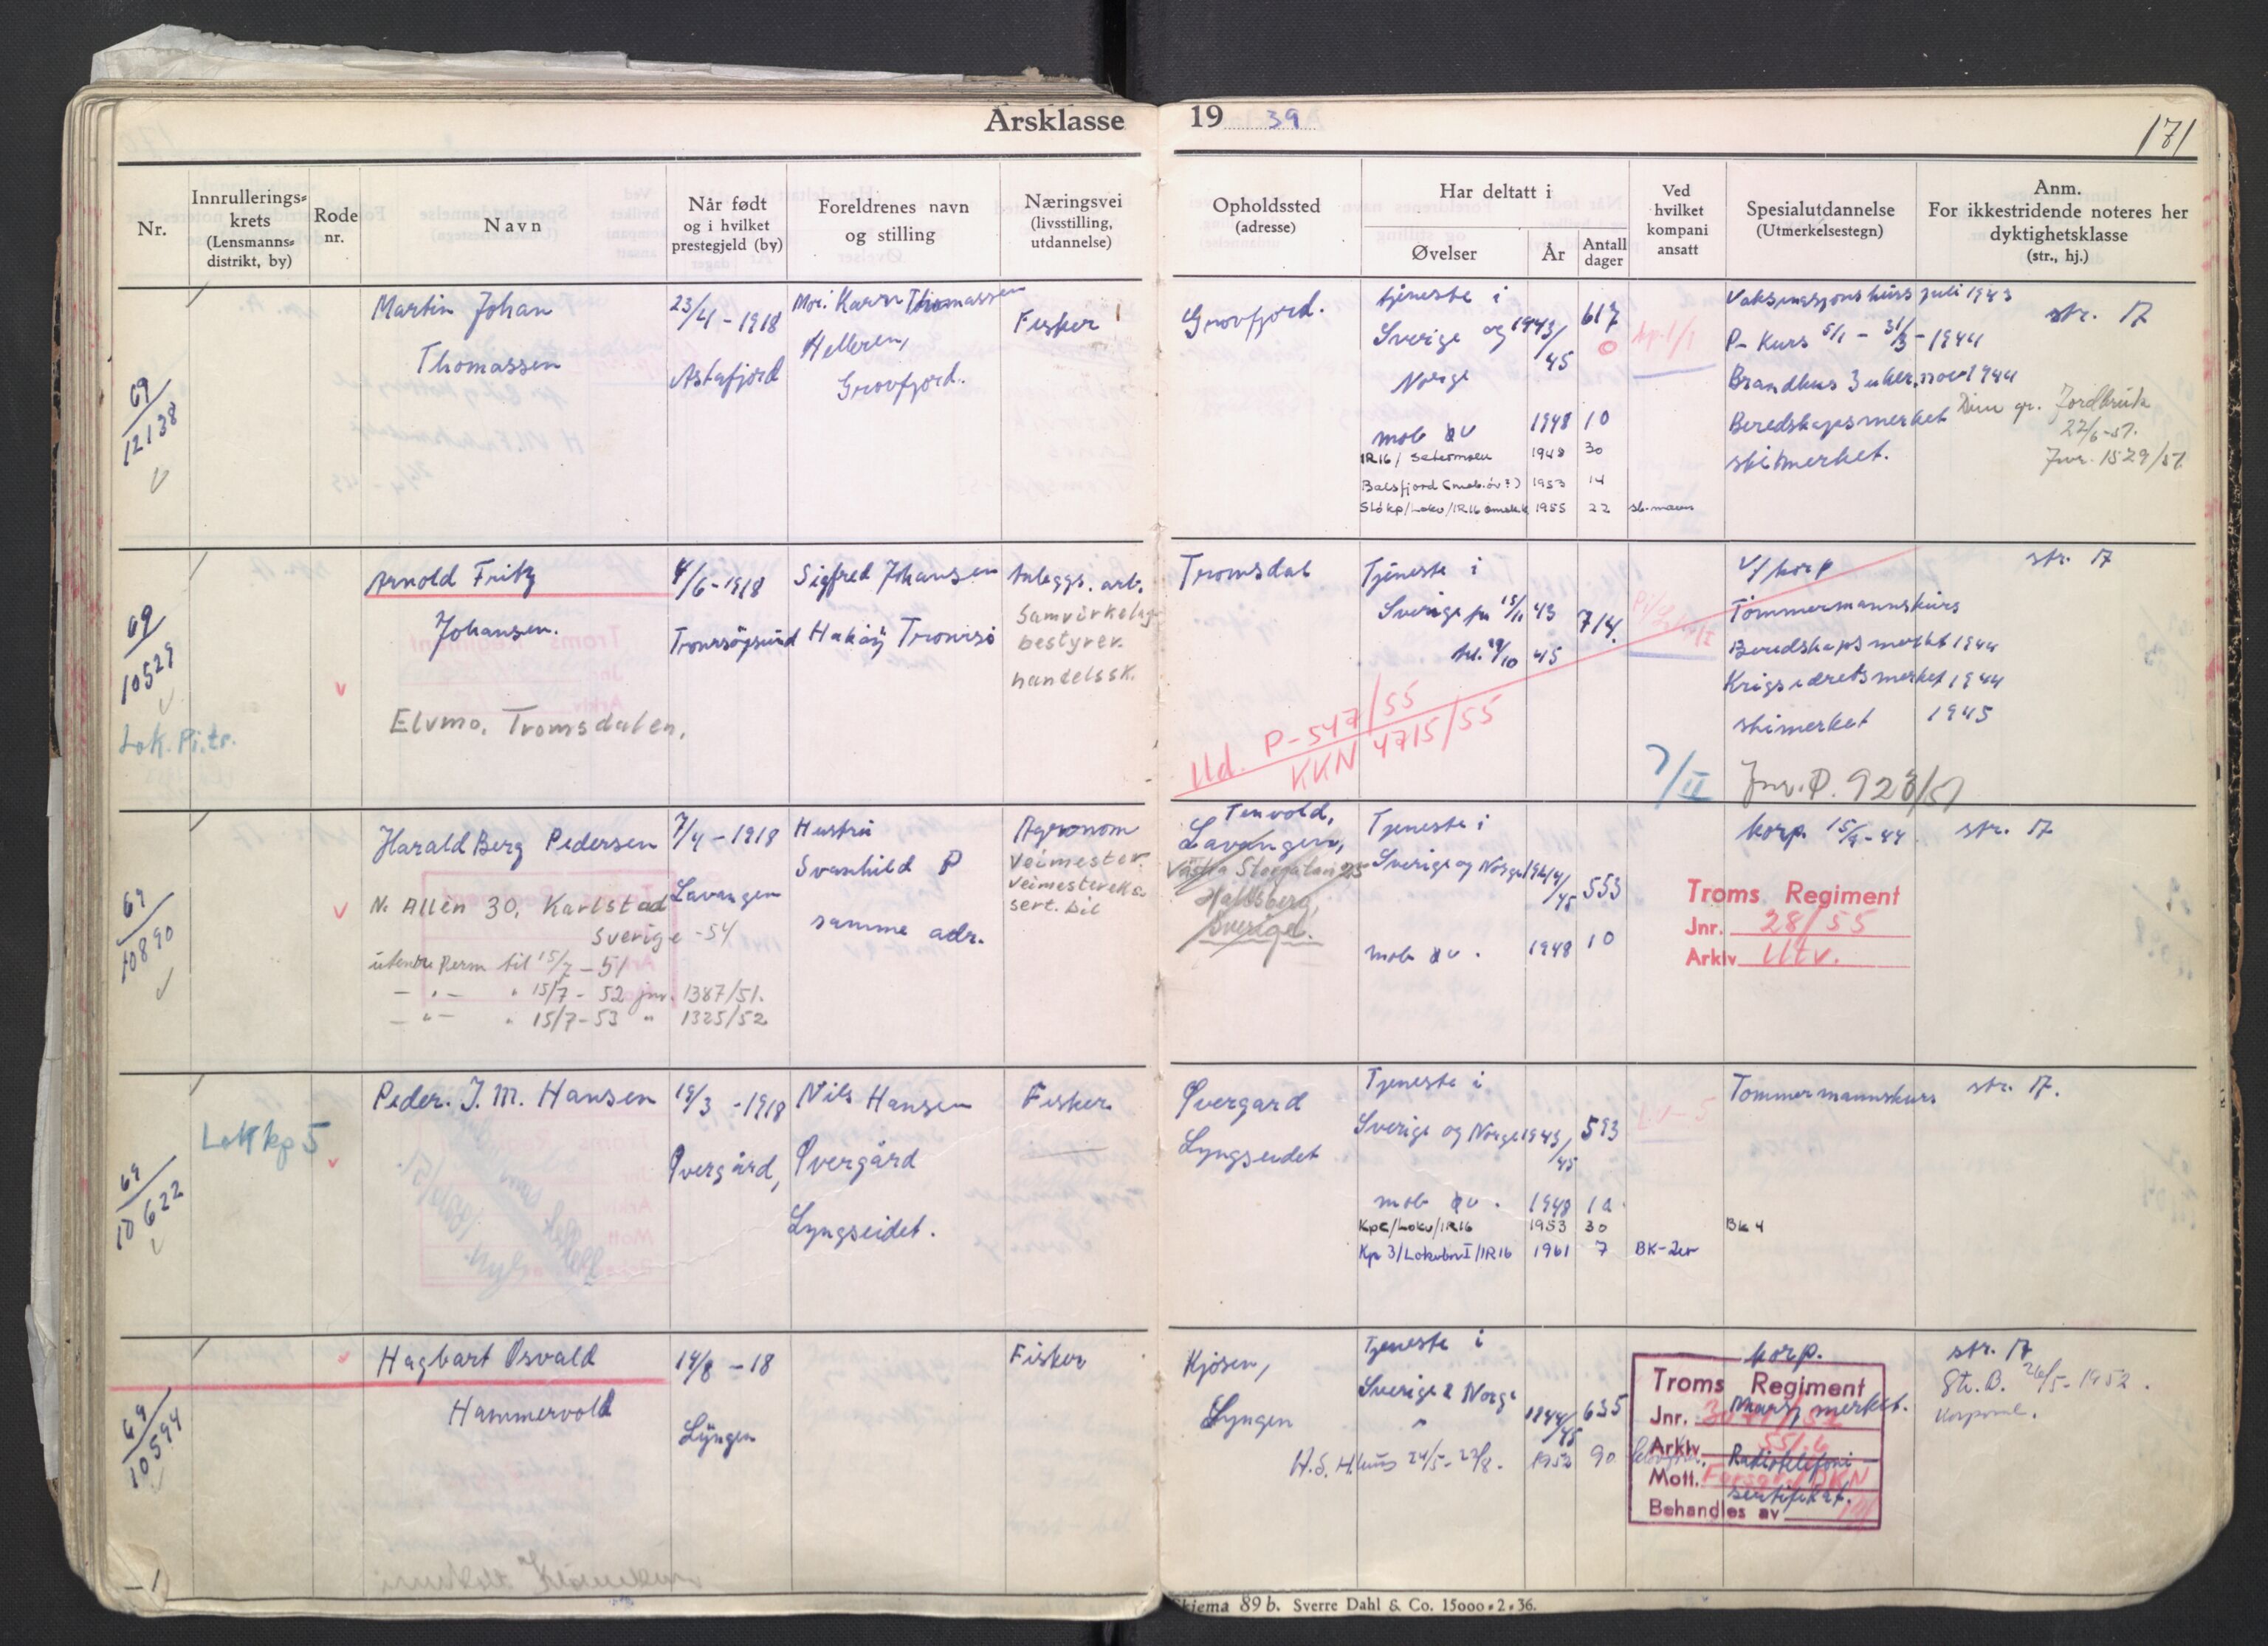 Årsklasse 19 39
171
Nr.
Innrullerings-
krets
(Lensmanns-
distrikt, by)
Rode
nr.
Navn
Når født
og i hvilket
prestegjeld (by)
Foreldrenes navn
og stilling
Næringsvei
(livsstilling,
utdannelse)
Opholdssted
(adresse)
Har deltatt i
Øvelser
År
Antall
dager
Ved
hvilket
kompani
ansatt
Spesialutdannelse
(Utmerkelsestegn)
Anm.
For ikkestridende noteres her
dyktighetsklasse
(str., hj.)
69/12138
Martin Johan
Thomassen
23/4 - 1918
Astafjord
Mor: Karen Thomassen
Helleren,
Grovfjord.
Fisker
Grovfjord.
tjeneste i
Sverige og 1943/45 617
Norge
mob øv 1948 10
IR16/ Setermoen 1948 30
Balsfjord (mob.øv?) 1953 14
1955 22
P- Kurs 5/1 - 31/3 - 1944
Brandkurs 3 uker, nov 1944
Beredskapsmerket
skimerket.
str. 17
Jordbruk
22/6-51.
Jnr. 1529/51
69/10529
Lok. Pi.tr.
Arnold Fritz
Johansen.
Elvmo, Tromsdalen.
4/6-1918
Tromsøysund
Sigfred Johansen
Hakøy Tromsø
Anleggs. arb.
Samvirkelag
bestyrer.
handelssk.
Tromsdal
Tjeneste i
Sverige fra 15/11 43 714.
til 29/10 45
Ud. P-547/55
KKN 4715/55
v/korp
Tømmermannskurs
Beredskapsmerket 1944
Krigsidrettsmerket 1944
skimerket 1945
7/II
Jnr. P. 923/51
str. 17
69/10890
Harald Berg Pedersen
N. Allen 30, Karlstad
Sverige -54
utenr. Perm til 15/7-51
- " - " 15/7- 52 jnr. 1387/51.
- " - " 15/7-53 " 1325/52
7/4 - 1918
Lavangen
Hustru
Svanhild P
samme adr.
Agronom
Veimester.
Veimestereks.
sert. bil
Tenvold,
Lavangen,
Västra Storgatan 25
Hallsberg,
Sverige.
Tjeneste i
Sverige og Norge 1944/45 553
mob øv. 1948 10
korp. 15/9-44.
str. 17
Troms Regiment
Jnr. 28/55
Arkiv Utv.
69/10622
Lok kp 5
Peder. J. M. Hansen
19/3 - 1918
Øvergård,
Nils Hansen
Øvergård
Lyngseidet.
Fisker
Øvergard
Lyngseidet
Tjeneste i
Sverige og Norge 1943/45 593
mob øv. 1948 10
KpC/Lokv/IR16 1953 30
Kp 3/Lokvbn I/IR16 1961 7 BK-2er
Tømmermannskurs
BK 4
str. 17.
69/10594
Hagbart Osvald
Hammervold
14/8 - 18
Lyngen
Fisker
Kjosen,
Lyngen
Tjeneste i
Sverige & Norge
" 1944/45 635
H.S. H.kurs 24/5 - 22/8. 1952 90
korp.
Troms Regiment
Jnr.
Arkiv
Mott.
Behandles av
Marsj merket.
Radiotelefoni-
sertifikat.
str. 17
Str. B. 26/5-1952.
Korporal.
Skjema 89 b. Sverre Dahl & Co. 15000.2.36.